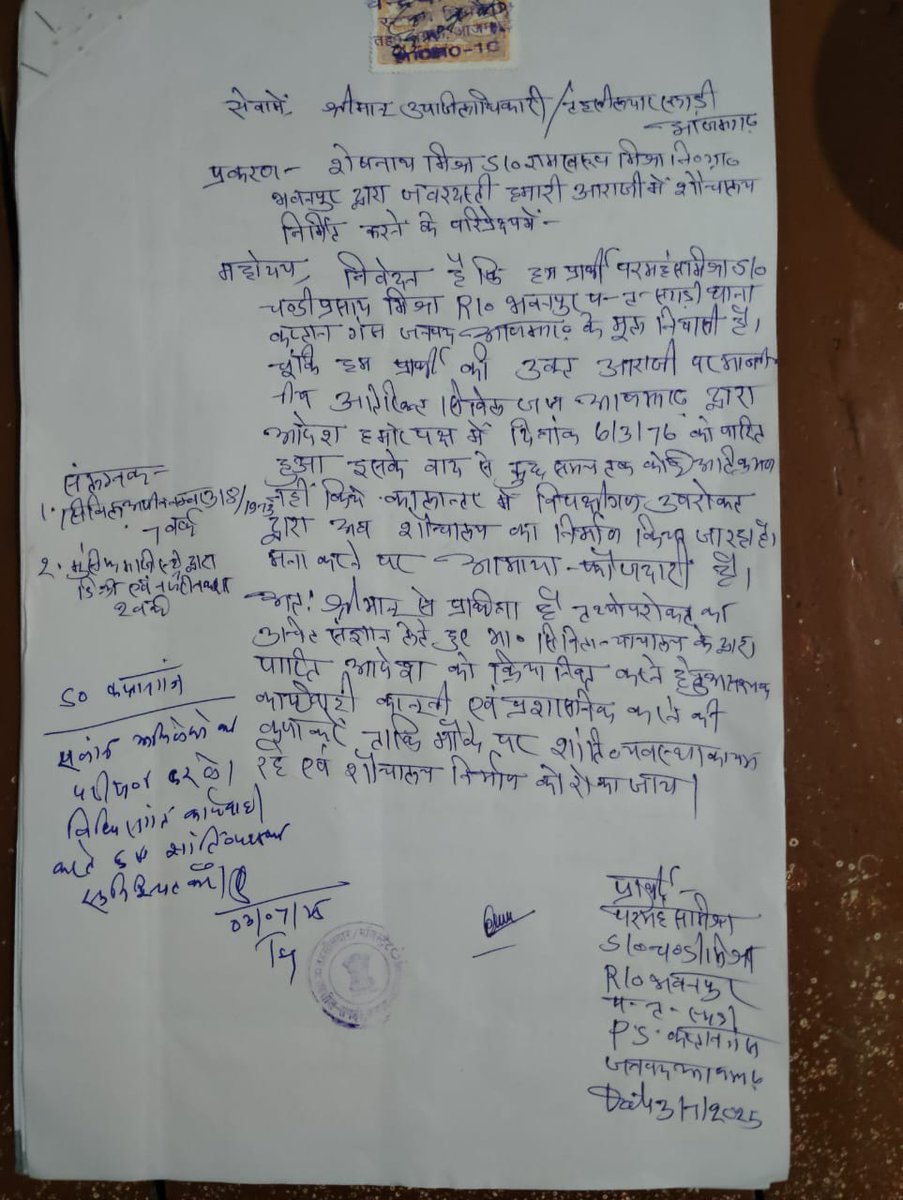 सेवामें श्रीमान उपजिलाधिकारी / तहसीलदार सगड़ी
आजमगढ़
प्रकरण- शेषनाथ मिश्रा S/o रामस्वरूप मिश्रा
भवनपुर द्वारा जबरदस्ती हमारी आराजी में शौचालय
निर्मित करने के परिप्रेक्ष्य में-
महोदय, निवेदन है कि हम प्रार्थी परमहंस मिश्रा S/o
चण्डी प्रसाद मिश्रा R/o भवनपुर प- त- सगड़ी थाना
कप्तान गंज जनपद आजमगढ़ के मूल निवासी है।
चूंकि हम प्रार्थी की उक्त आराजी पर मानन
नीय अतिरिक्त सिविल जज आजमगढ़ द्वारा
आदेश हमारे पक्ष में दिनांक 6/3/76 को पारित
हुआ इसके बाद से कुछ समय तक कोई अतिक्रमण
नहीं किये कालान्तर में विपक्षीगण उपरोक्त
द्वारा अब शौचालय का निर्माण किया जा रहा है।
मना करने पर आमादा फौजदारी है।
अतः श्रीमान से प्रार्थना है तथ्योपरोक्त का
उचित संज्ञान लेते हुए मा० सिविल न्यायालय के द्वारा
पारित आदेश को क्रियान्वित करने हेतु आवश्यक
कार्यवाही कानूनी एवं प्रशासनिक करने की
कृपा करें ताकि मौके पर शांति व्यवस्था कायम
रहे एवं शौचालय निर्माण को रोका जाय।
संलग्नक-
1. सिविल अपील 318/1973
वर्क
2. द्वारा
डिक्री एवं
2 वर्क
SO कप्तानगंज
अभिलेखों का
परीक्षण कर लें।
विधि संगत कार्यवाही
करते हुए शांति व्यवस्था
सुनिश्चित करें।
03/07/25
प्रार्थी
परमहंस मिश्रा
S/o चण्डी मिश्रा
R/o भवनपुर
प- त- सगड़ी
P.S. कप्तानगंज
जनपद आजमगढ़